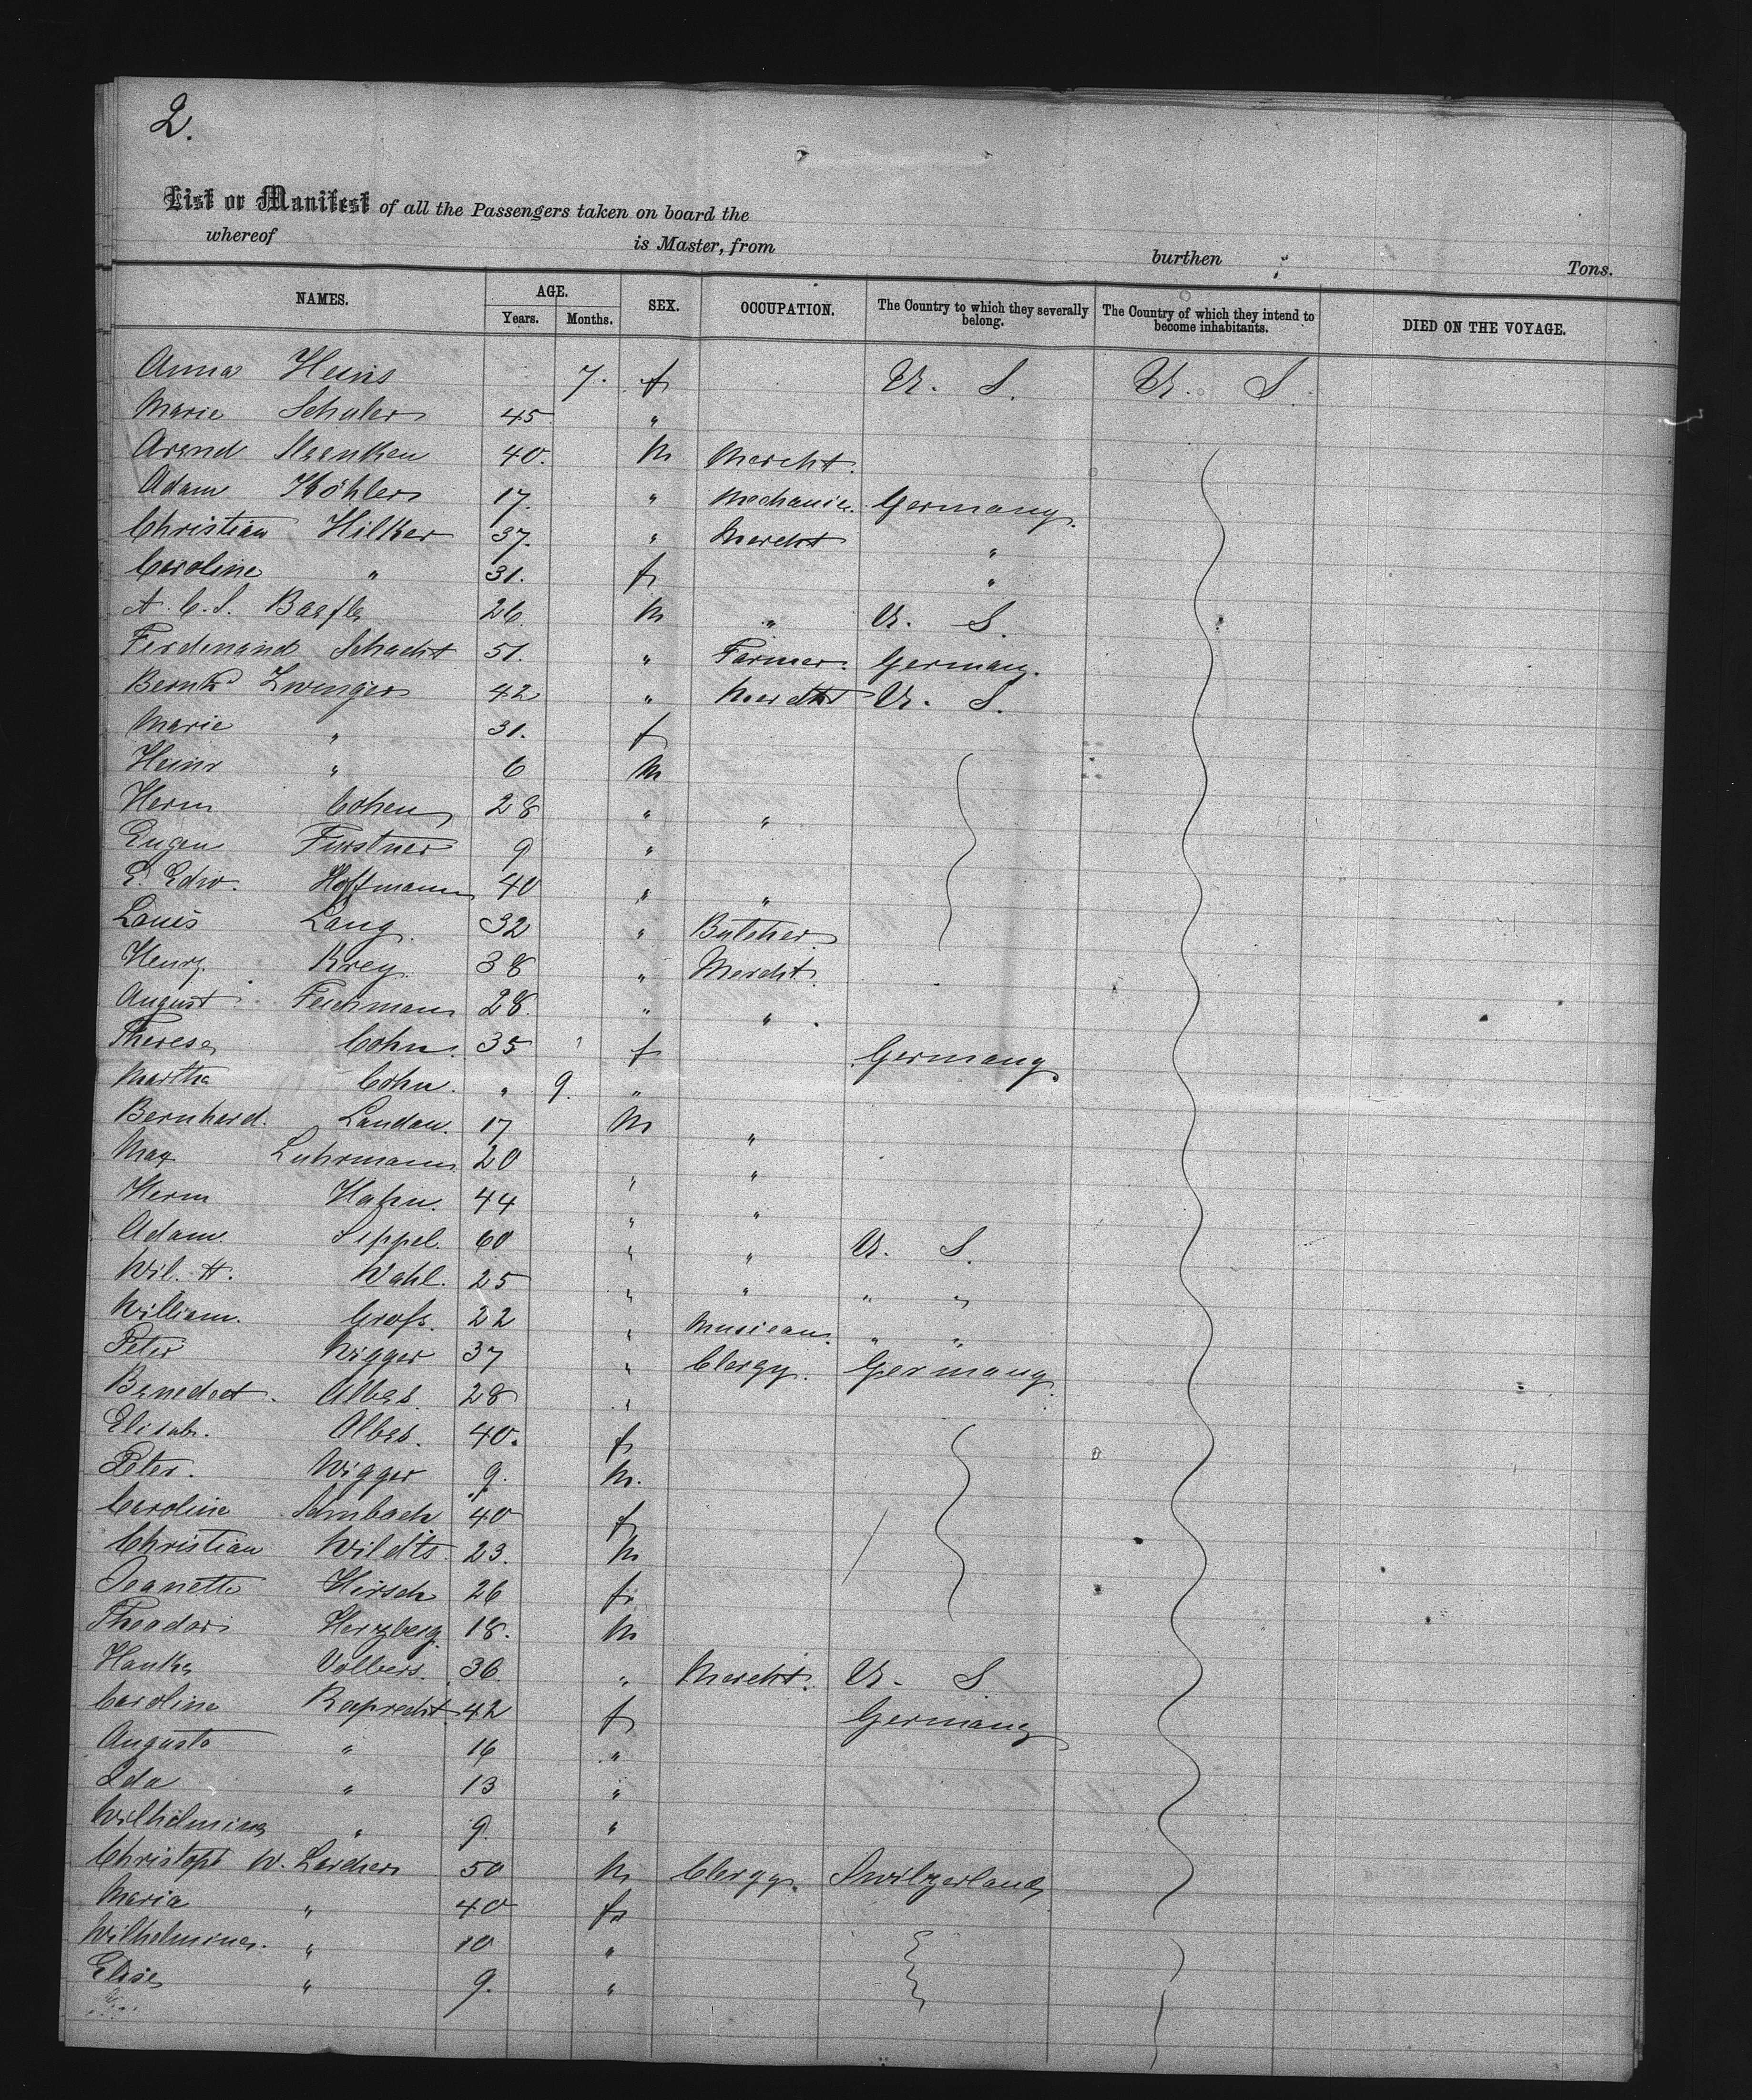 2.
List or Manifest of all the Passengers taken on board the
whereof is Master, from burthen Tons.
NAMES. AGE. SEX. OCCUPATION. The Country to which they severally belong. The Country of which they intend to become inhabitants. DIED ON THE VOYAGE.
Years. Months.
Anna Heins 7. f U. S. U. S.
Marie Schuler 45 "
Arend Steenken 40. M Mercht.
Adam Köhler 17. " Mechanic. Germany.
Christian Hilker 37. " Mercht "
Caroline " 31. f "
A. C. S. 26. M " U. S.
Ferdinand Schacht 51. " Farmer. Germany.
Bernhd Zwinger 42 " Mercht U. S.
Marie " 31. f
Heinr " 6 M
Herm Cohen 28 " "
Eugen Furstner 9 "
E. Edw. Hoffmann 40 " "
Louis Lang. 32 " Butcher.
Henry Krey. 38 " Mercht.
August 28. " "
Therese Cohn. 35 f Germany
Martha Cohn. " 9. "
Bernhard. Landau. 17 M "
Max Luhrmann 20 " "
Herm Hahn. 44 " "
Adam Sippel. 60 " " U. S.
Wil. H. Wahl. 25 " " " "
William. Groß. 22 " Musican. " "
Peter Wigger 37 " Clergy. Germany
Benedect. Albes. 28 "
Elisab. Albes. 40. f
Peter. Wigger 9. M.
Caroline 40 f
Christian Wildts. 23. M
Jeanette Hirsch 26 f
Theodor Herzberg 18. M
Volbers. 36. " Mercht. U. S.
Caroline Ruprecht 42 f Germany
Augusta " 16 "
Ida " 13 "
Wilhelmina " 9. "
Christoph W. Lercher 50 M Clergy. Switzerland
Maria " 40 f
Wilhelmina. " 10 "
Elise " 9. "